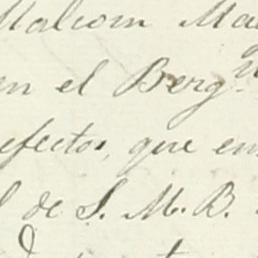 Malcom Ma
en el Berg.n
efectos, que en
l de S. M. B.